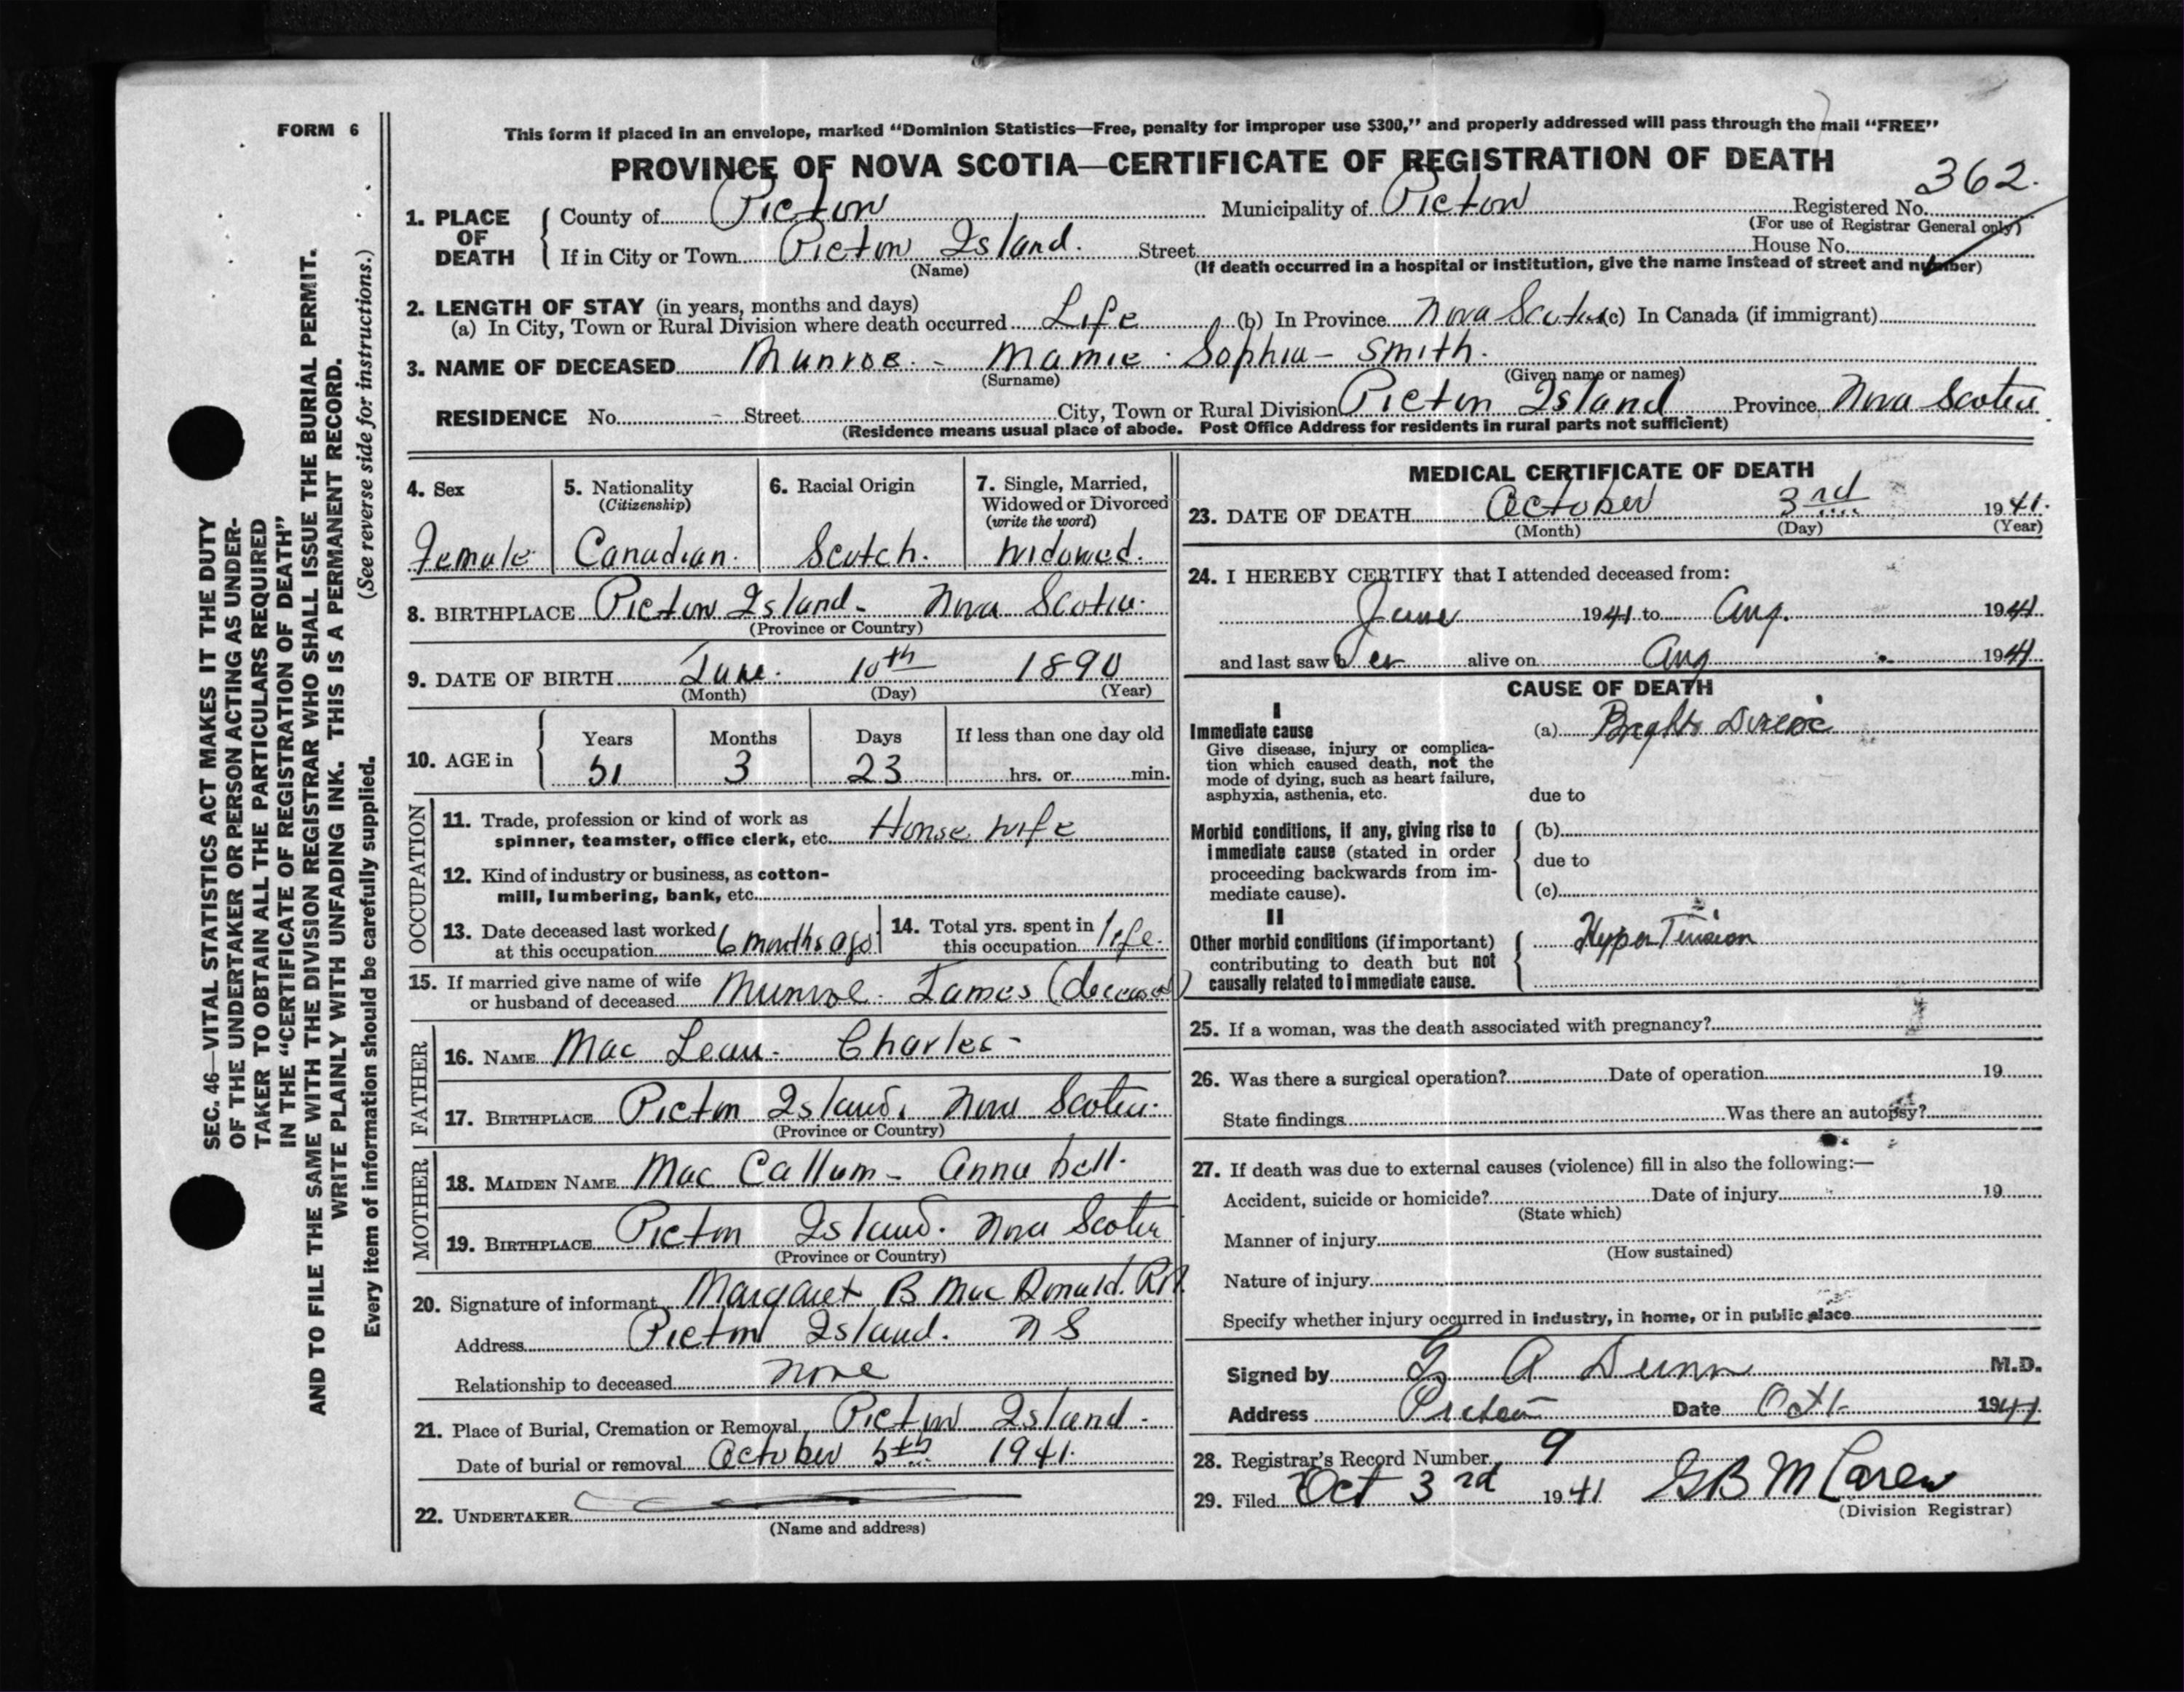 FORM 6
This form if placed in an envelope, marked "Dominion Statistics—Free, penalty for improper use $300," and properly addressed will pass through the mail "FREE"
PROVINCE OF NOVA SCOTIA—CERTIFICATE OF REGISTRATION OF DEATH
362.
1. PLACE OF DEATH County of Picton Municipality of Picton Registered No.
(For use of Registrar General only)
If in City or Town Picton Island. Street House No.
(Name) (If death occurred in a hospital or institution, give the name instead of street and number)
2. LENGTH OF STAY (in years, months and days)
(a) In City, Town or Rural Division where death occurred Life (b) In Province Nova Scotia (c) In Canada (if immigrant)
3. NAME OF DECEASED Munroe - Mamie Sophia - Smith.
(Surname) (Given name or names)
RESIDENCE No. - Street City, Town or Rural Division Picton Island Province Nova Scotia
(Residence means usual place of abode. Post Office Address for residents in rural parts not sufficient)
4. Sex
Female
5. Nationality
(Citizenship)
Canadian.
6. Racial Origin
Scotch.
7. Single, Married,
Widowed or Divorced
(write the word)
Widowed.
8. BIRTHPLACE Picton Island - Nova Scotia.
(Province or Country)
9. DATE OF BIRTH June. 10th 1890
(Month) (Day) (Year)
10. AGE in Years Months Days If less than one day old
51 3 23 hrs. or min.
OCCUPATION
11. Trade, profession or kind of work as
spinner, teamster, office clerk, etc. House wife
12. Kind of industry or business, as cotton-
mill, lumbering, bank, etc.
13. Date deceased last worked
at this occupation 6 months ago
14. Total yrs. spent in
this occupation life.
15. If married give name of wife
or husband of deceased Munroe - James (deceased)
FATHER
16. NAME Mac Lean - Charles -
17. BIRTHPLACE Picton Island, Nova Scotia.
(Province or Country)
MOTHER
18. MAIDEN NAME Mac Callum - Anna bell.
19. BIRTHPLACE Picton Island. Nova Scotia
(Province or Country)
20. Signature of informant Margaret B Mac Donald. R.N.
Address Picton Island. N S
Relationship to deceased none
21. Place of Burial, Cremation or Removal Picton Island -
Date of burial or removal October 5th 1941.
22. UNDERTAKER
(Name and address)
MEDICAL CERTIFICATE OF DEATH
23. DATE OF DEATH October 3rd 1941.
(Month) (Day) (Year)
24. I HEREBY CERTIFY that I attended deceased from:
June 1941 to Aug. 1941
and last saw her alive on Aug 1941
CAUSE OF DEATH
I
Immediate cause
Give disease, injury or complica-
tion which caused death, not the
mode of dying, such as heart failure,
asphyxia, asthenia, etc.
(a) Brights Disease
due to
Morbid conditions, if any, giving rise to
immediate cause (stated in order
proceeding backwards from im-
mediate cause).
(b)
due to
(c)
II
Other morbid conditions (if important)
contributing to death but not
causally related to immediate cause.
Hyper Tension
25. If a woman, was the death associated with pregnancy?
26. Was there a surgical operation? Date of operation 19
State findings Was there an autopsy?
27. If death was due to external causes (violence) fill in also the following:—
Accident, suicide or homicide? Date of injury 19
(State which)
Manner of injury
(How sustained)
Nature of injury
Specify whether injury occurred in industry, in home, or in public place
Signed by G A Dunn M.D.
Address Picton Date Oct 1941
28. Registrar's Record Number 9
29. Filed Oct 3rd 1941 G B McLaren
(Division Registrar)
SEC. 46—VITAL STATISTICS ACT MAKES IT THE DUTY
OF THE UNDERTAKER OR PERSON ACTING AS UNDER-
TAKER TO OBTAIN ALL THE PARTICULARS REQUIRED
IN THE "CERTIFICATE OF REGISTRATION OF DEATH"
AND TO FILE THE SAME WITH THE DIVISION REGISTRAR WHO SHALL ISSUE THE BURIAL PERMIT.
WRITE PLAINLY WITH UNFADING INK. THIS IS A PERMANENT RECORD.
Every item of information should be carefully supplied. (See reverse side for instructions.)